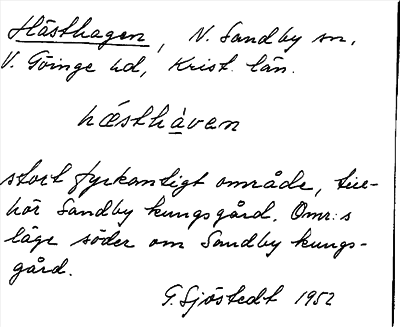 Hästhagen, N. Sandby sn.
V. Göinge hd, Krist. län.
hǽsthàven
stort fyrkantigt område, till-
hör Sandby kungsgård. Omr:s
läge söder om Sandby kungs-
gård.
G. Sjöstedt 1952